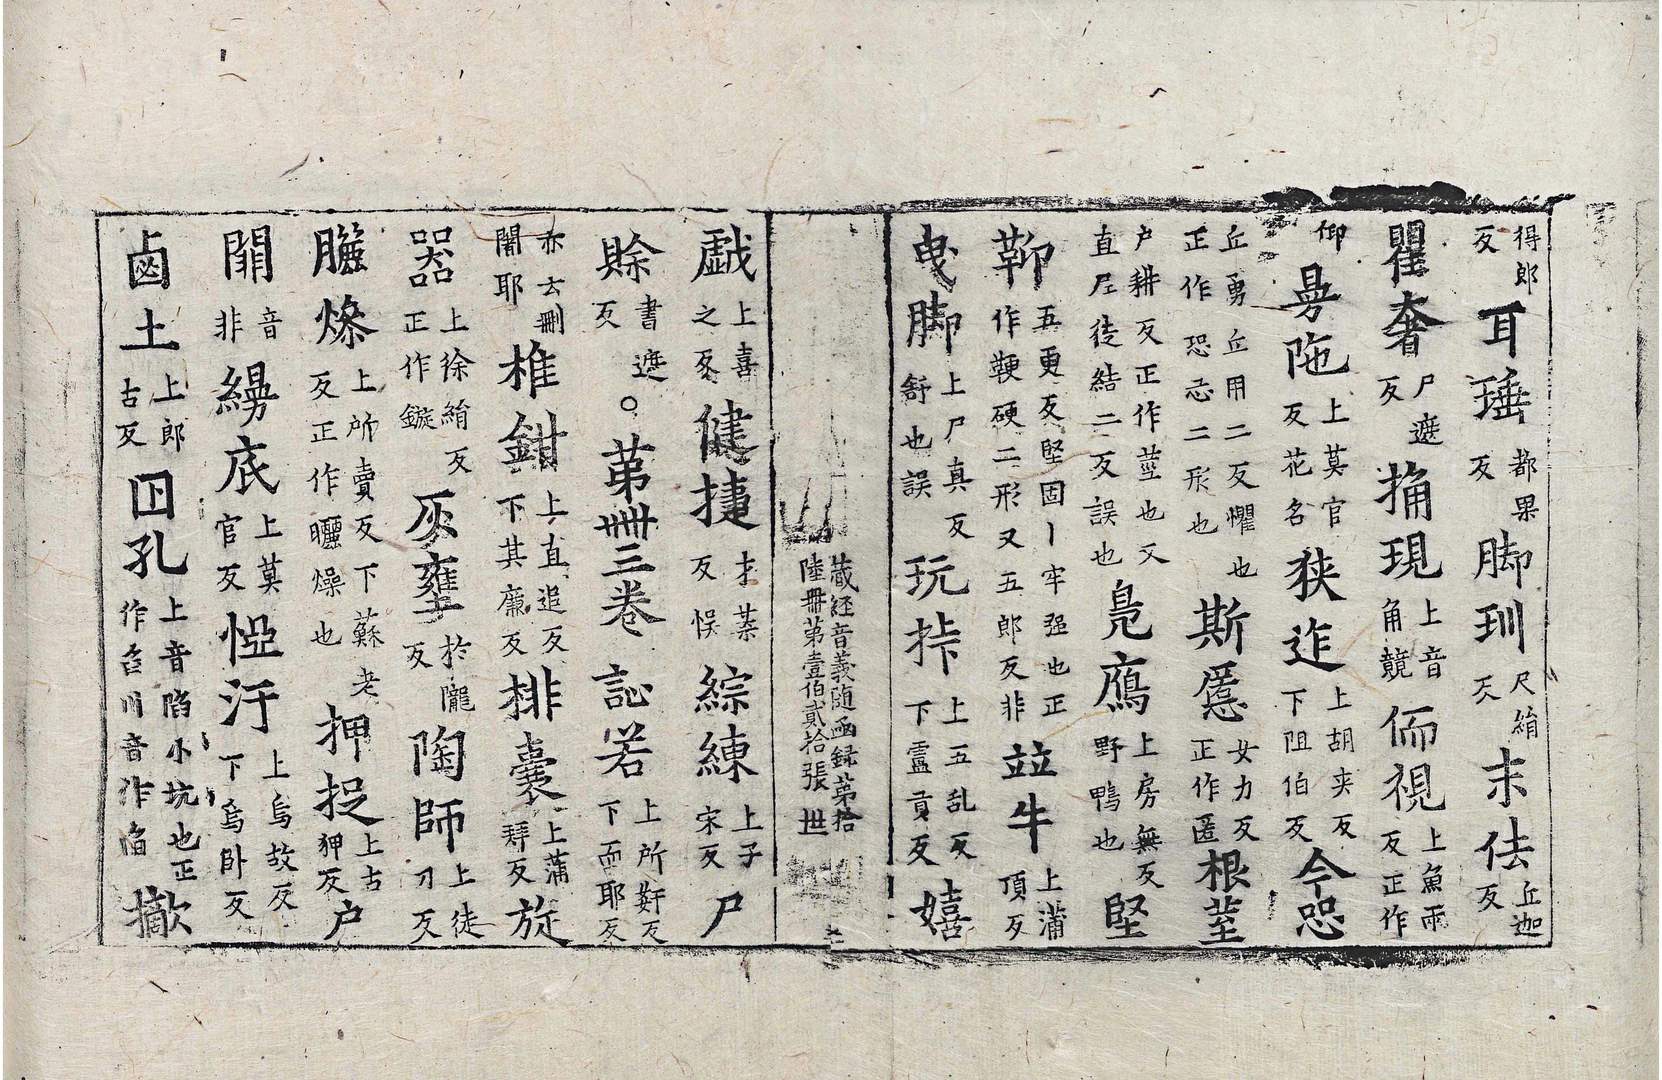 得郎反耳埵都果反脚玔尺絹反末佉丘迦反
瞿奢尸遮反捔現上音角競侕視上魚雨反正作
仰曼陁上莫官反花名狹迮上胡夾反下阻伯反今恐
丘勇丘用二反懼也正作恐忈二形也斯慝女力反正作匿根莖
户耕反正作莖也又直尼徒結二反誤也鳧鴈上房無反野鴨也堅
鞕五更反堅固丨牢强也正作鞕硬二形又五郎反非並牛上蒲頂反
曳脚上尸真反舒也誤玩挊上五乱反下靈貢反嬉
藏經音義随函録第拾陸冊第壹伯貳拾張 世
戱上喜之反健捷才葉反悮綜練上子宋反尸
賖書遮反○第卌三卷訟若上所姧反下而耶反
亦云刪闍耶椎鉗上直追反下其廉反排囊上蒲拜反旋
器上徐絹反正作鏇灰壅於隴反陶師上徒刀反
臛燥上所賣反下蘇老反正作曬燥也押捉上古狎反户
關音非縵底上莫官反惡汙上烏故反下烏卧反
鹵土上郎古反囙孔上音陷小坑也正作臽川音作陷撤